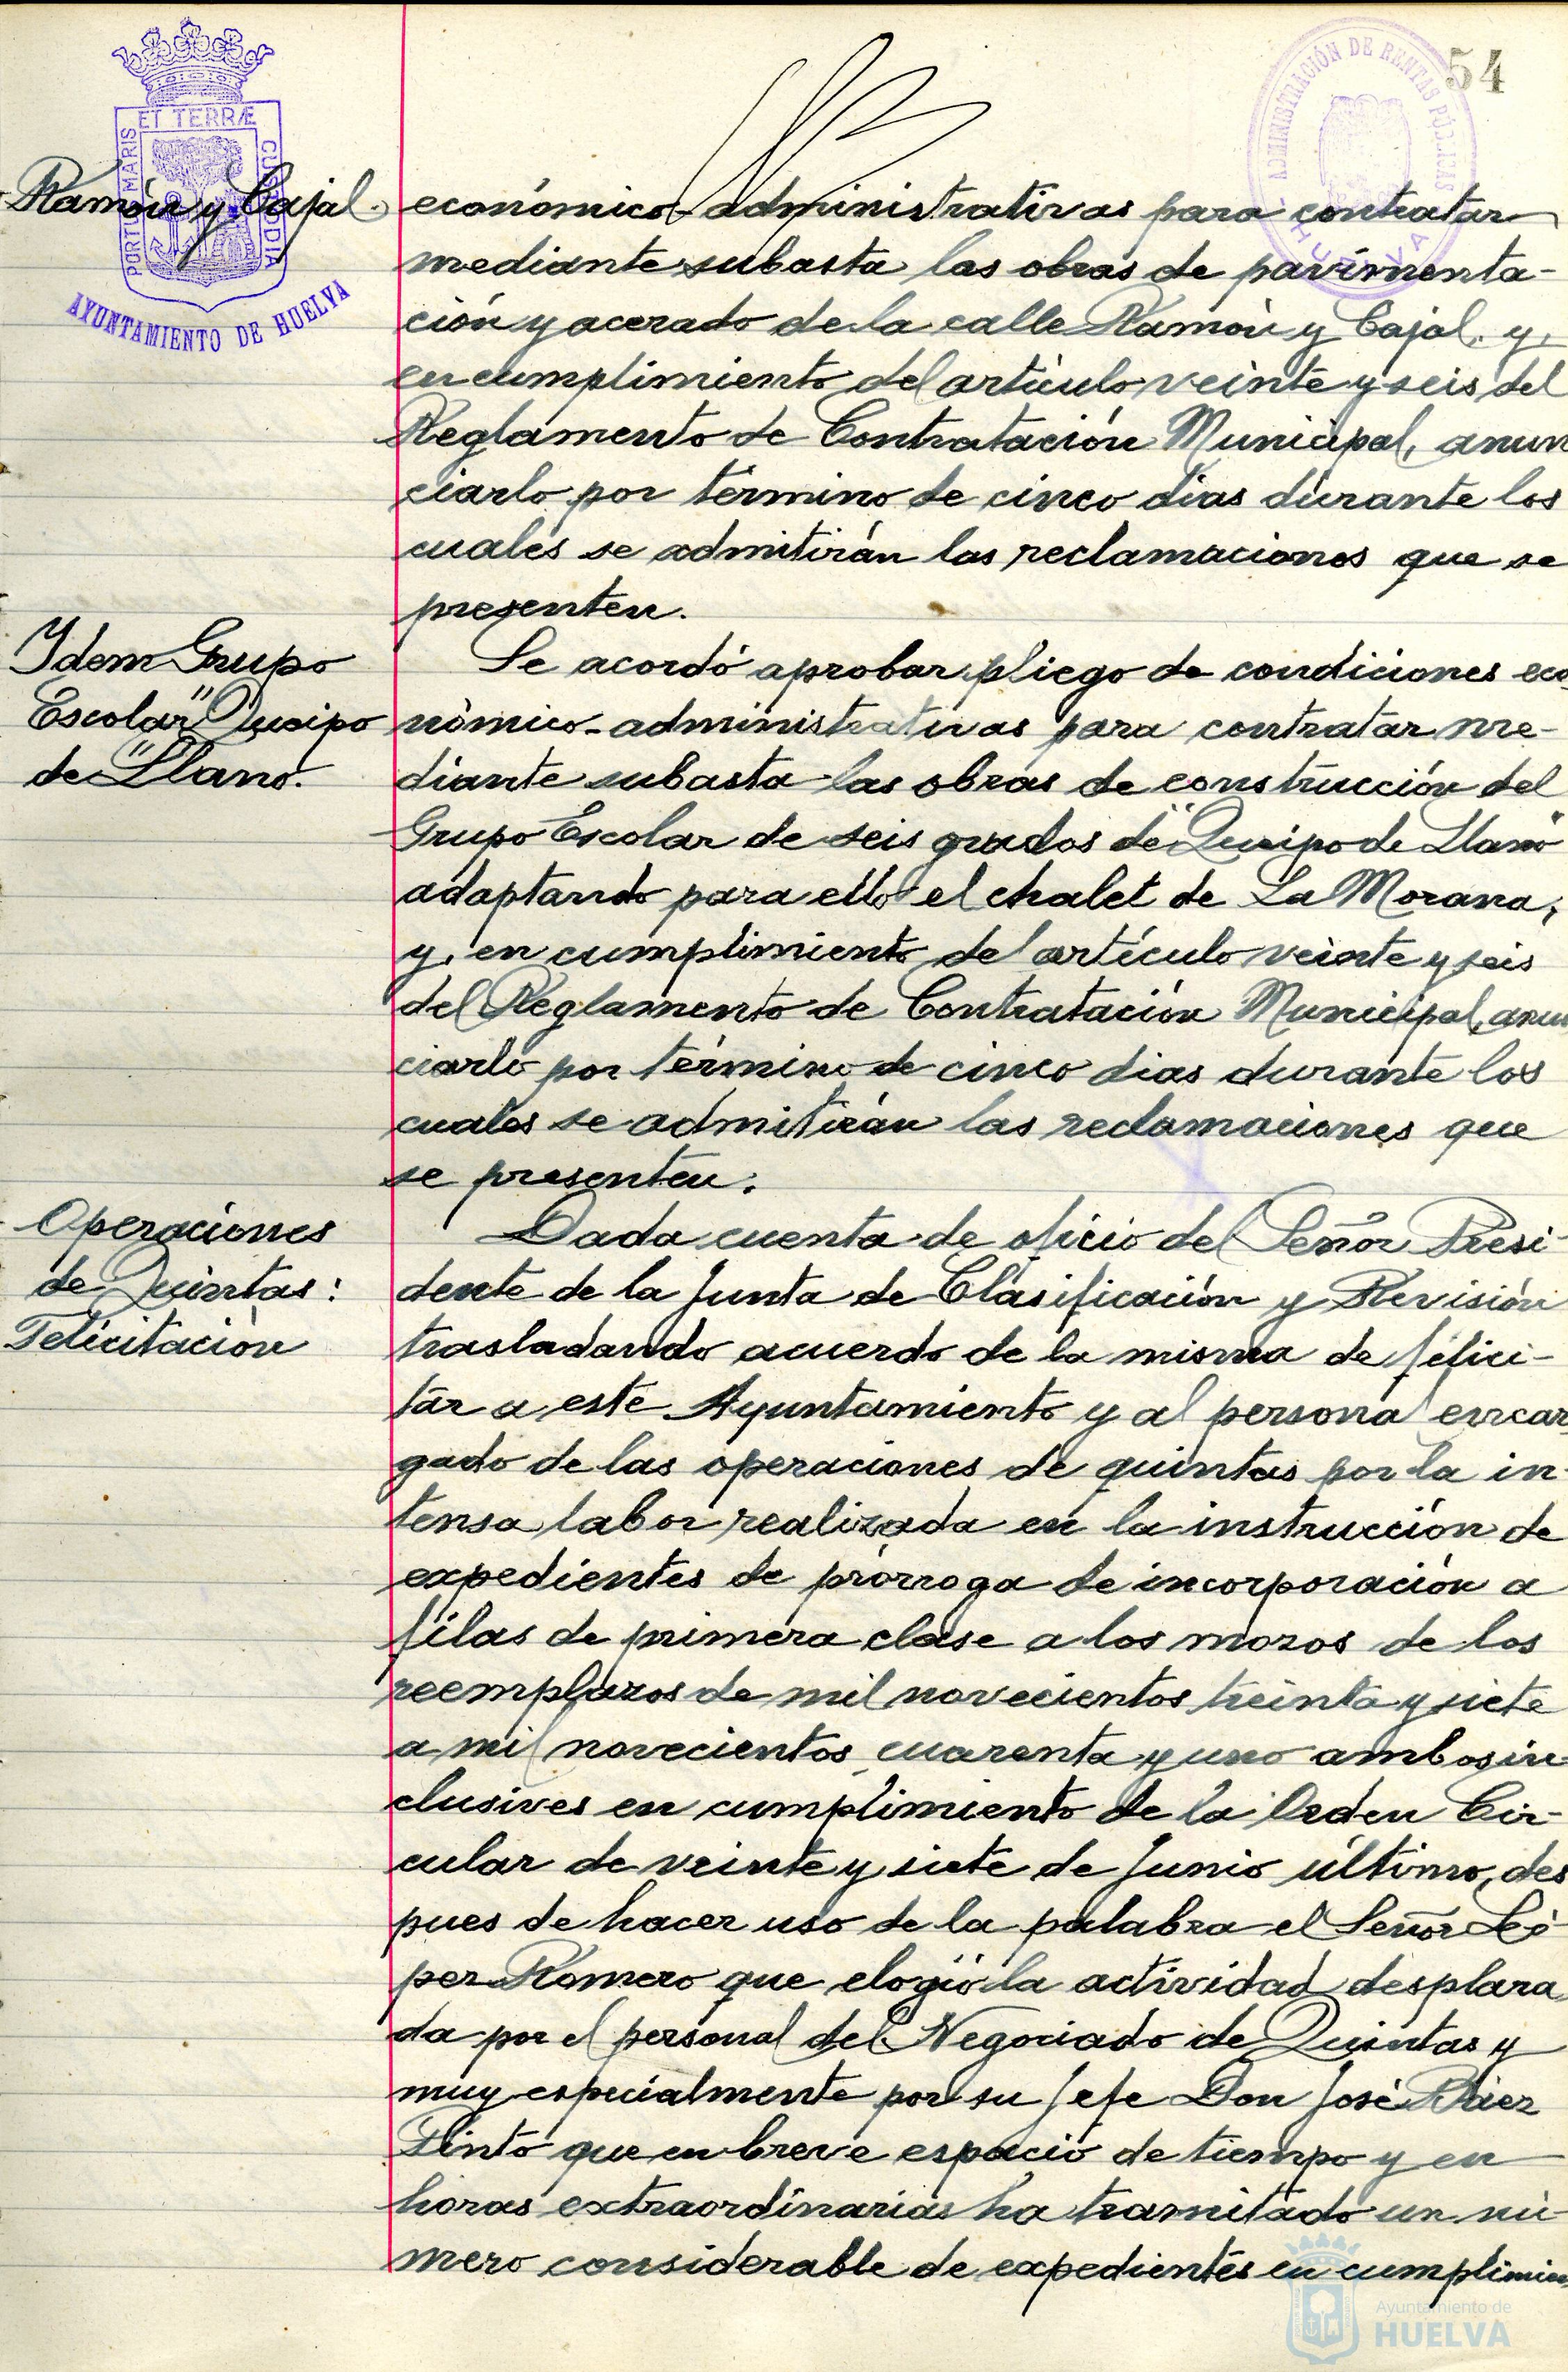 54
ADMINISTRACIÓN DE RENTAS PÚBLICAS
HUELVA
PORTUS MARIS ET TERRÆ CUSTODIA
AYUNTAMIENTO DE HUELVA
Ramón y Cajal.
económico-administrativas para contratar
mediante subasta las obras de pavimenta-
ción y acerado de la calle Ramón y Cajal, y,
en cumplimiento del artículo veinte y seis del
Reglamento de Contratación Municipal, anun
ciarlo por término de cinco dias durante los
cuales se admitirán las reclamaciones que se
presenten.
Idem Grupo
Escolar "Queipo
de Llano".
Se acordó aprobar pliego de condiciones eco
nómico-administrativas para contratar me-
diante subasta las obras de construcción del
Grupo Escolar de seis grados de "Queipo de Llano"
adaptando para ello el chalet de La Morana,
y, en cumplimiento del artículo veinte y seis
del Reglamento de Contratación Municipal, anun
ciarlo por término de cinco dias durante los
cuales se admitirán las reclamaciones que
se presenten.
Operaciones
de Quintas:
Felicitación
Dada cuenta de oficio del Señor Presi-
dente de la Junta de Clasificación y Revisión
trasladando acuerdo de la misma de felici-
tar a este Ayuntamiento y al personal encar
gado de las operaciones de quintas por la in-
tensa labor realizada en la instrucción de
expedientes de prórroga de incorporación a
filas de primera clase a los mozos de los
reemplazos de mil novecientos treinta y siete
a mil novecientos cuarenta y uno ambos in
clusives en cumplimiento de la Orden Cir-
cular de veinte y siete de Junio último, des
pues de hacer uso de la palabra el Señor Ló
pez Romero que elogió la actividad desplaza
da por el personal del Negociado de Quintas y
muy especialmente por su Jefe Don José
Pinto que en breve espacio de tiempo y en
horas extraordinarias ha tramitado un nú
mero considerable de expedientes en cumplimien
Ayuntamiento de
HUELVA